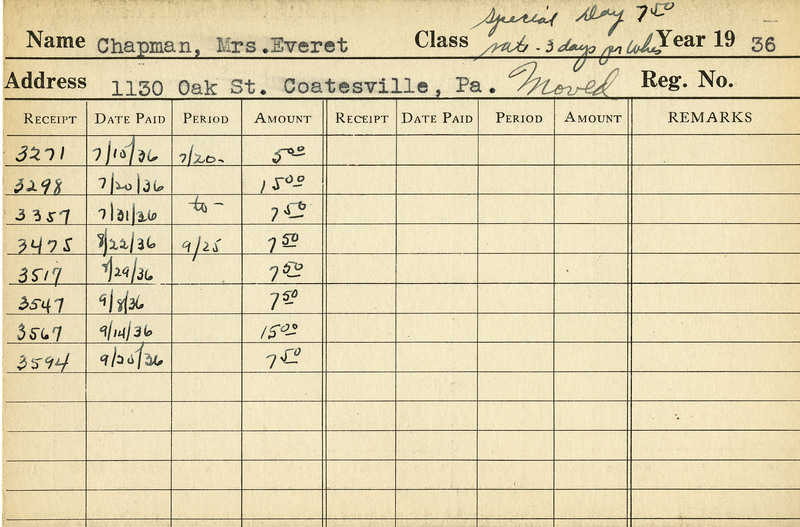 Special Day 7.50
Name Chapman, Mrs.Everet Class rate - 3 days per Year 19 36
Address 1130 Oak St. Coatesville, Pa. Moved Reg. No.
RECEIPT DATE PAID PERIOD AMOUNT RECEIPT DATE PAID PERIOD AMOUNT REMARKS
3271 7/10/36 7/20- 5.00
3298 7/20/36 15.00
3357 7/31/36 to - 7.50
3475 8/22/36 9/25 7.50
3517 8/29/36 7.50
3547 9/8/36 7.50
3567 9/14/36 15.00
3594 9/20/36 7.50